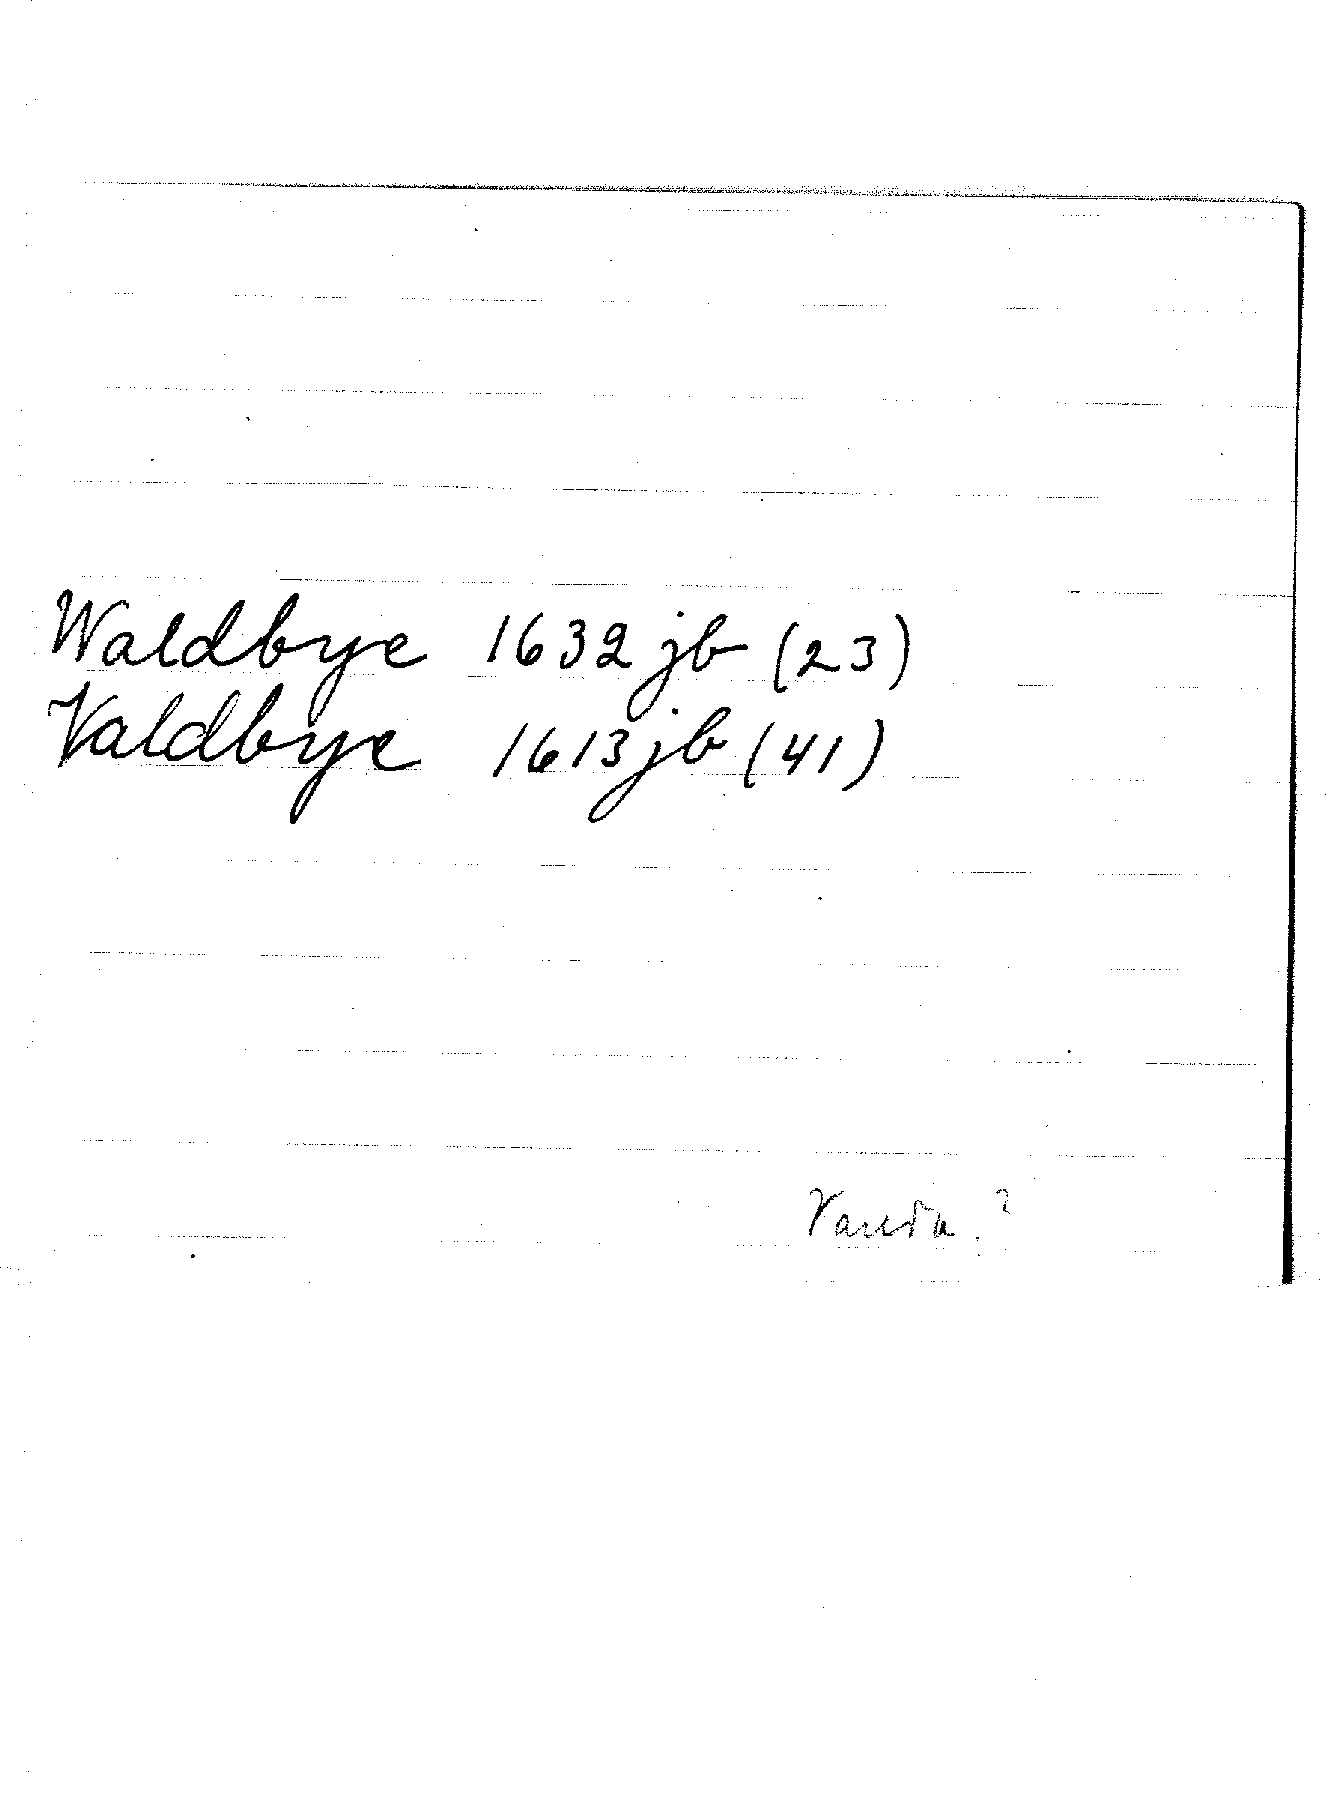 Waldbye 1632 jb (23)
Valdbye 1613 jb (41)